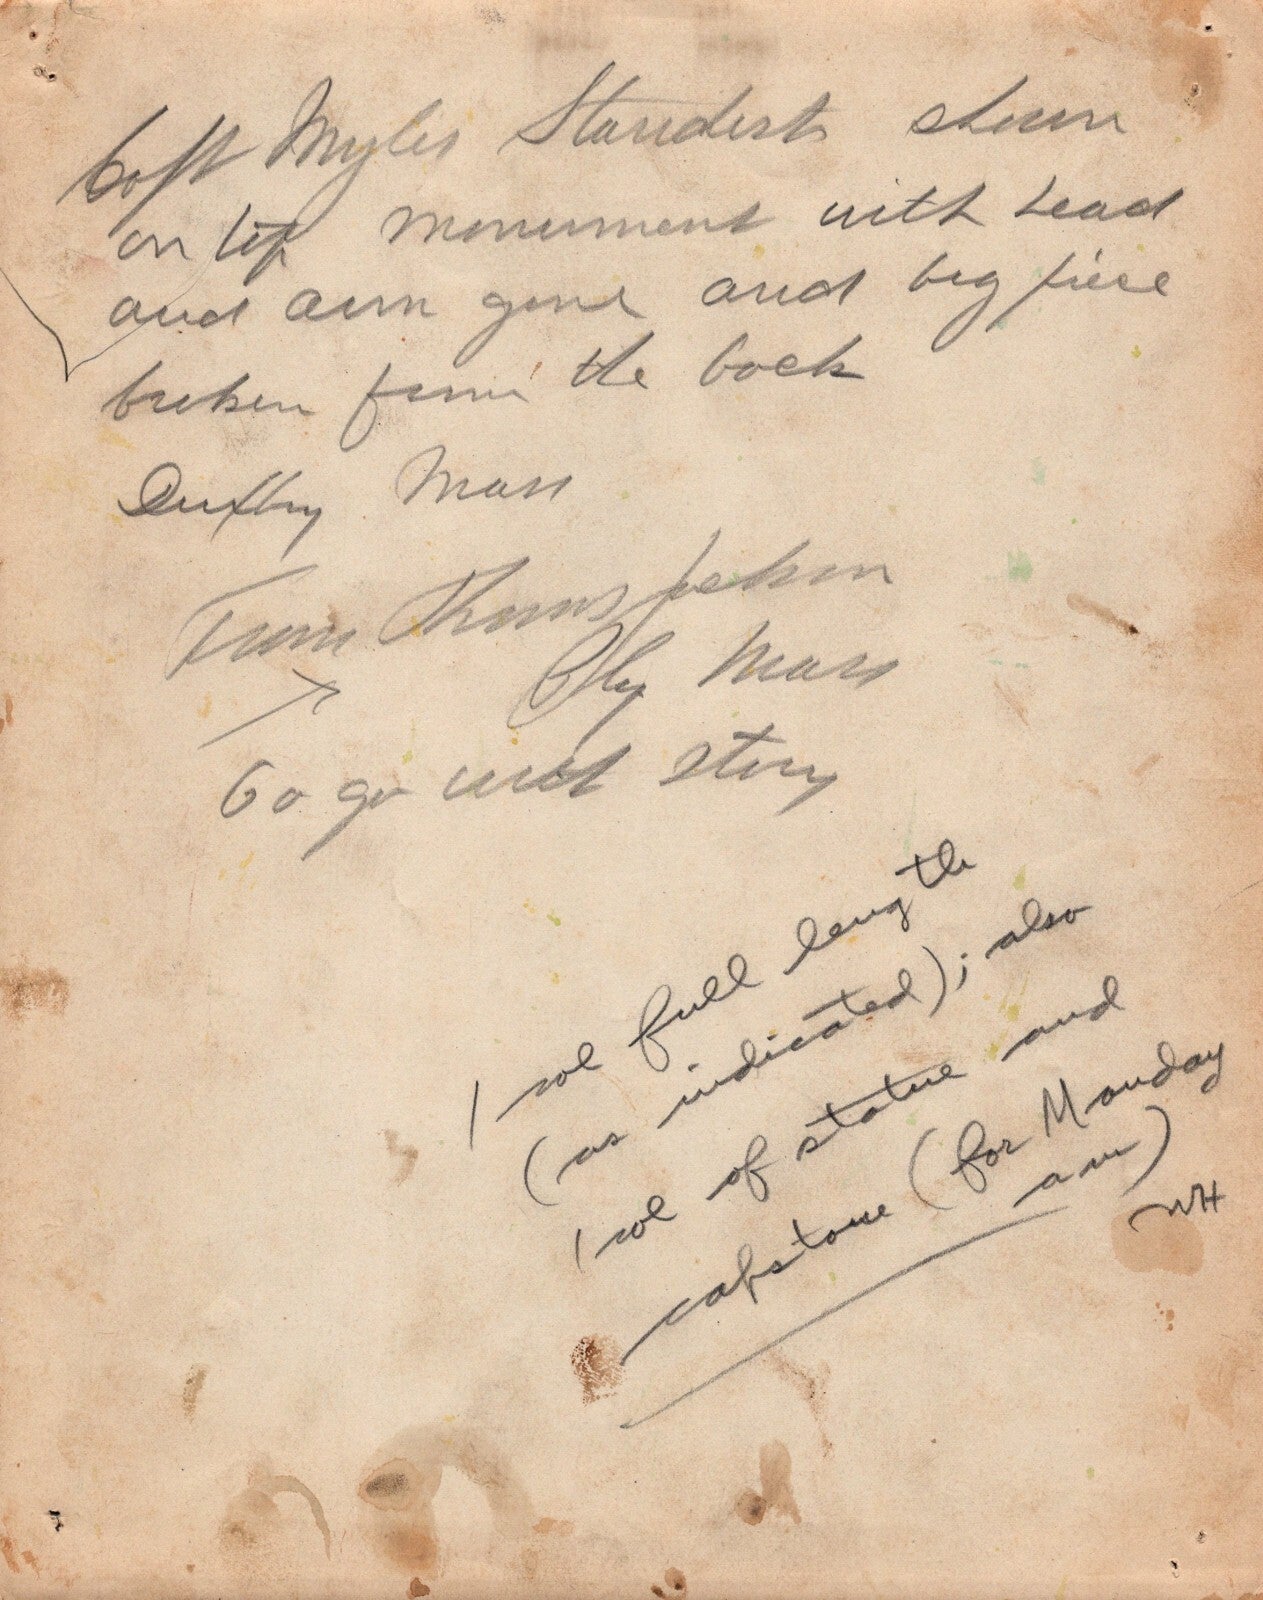 Capt Myles Standish shown
on top monument with head
and arm gone and big piece
broken from the back
Duxbury Mass
From
Ply Mass
To go with story
1 col full length
(as indicated); also
1 col of statue and
capstone (for Monday
am)
WH